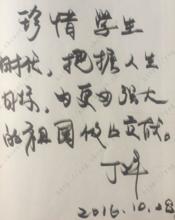 珍惜学生
时代，把握人生
目标，为更为强大
的祖国作上交代。
丁
2016.10.28